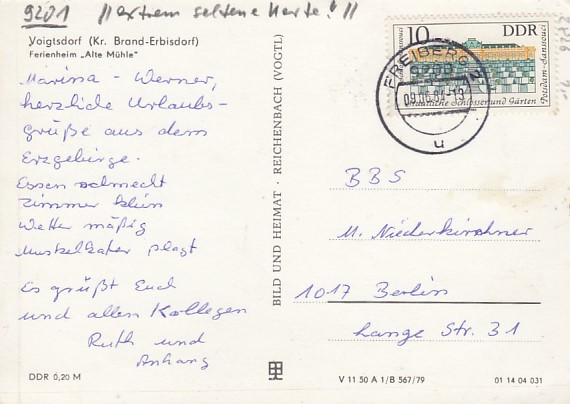 9201 "extrem seltene Karte!"
Voigtsdorf (Kr. Brand-Erbisdorf)
Ferienheim „Alte Mühle"
Marina - Werner,
herzliche Urlaubs-
grüße aus dem
Erzgebirge.
Essen schmeckt
Zimmer klein
Wetter mäßig
Muskelkater plagt
Es grüßt Euch
und allen Kollegen
Ruth und
Anhang
DDR 0,20 M
BILD UND HEIMAT · REICHENBACH (VOGTL)
10 DDR
Potsdam-Sanssouci
Staatliche Schlösser und Gärten
FREIBERG
9200
09.06.84-13
u
BBS
M. Niederkirchner
1017 Berlin
Lange Str. 31
V 11 50 A 1/B 567/79
01 14 04 031